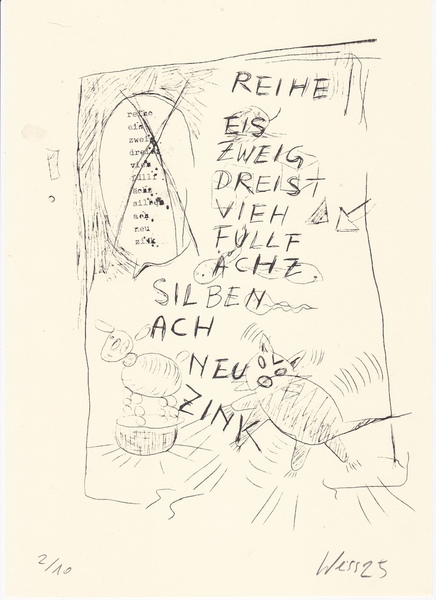 reihe
eis
zweig
dreist
vieh
füllf
ächz
silben
ach
neu
zink
REIHE
EIS
ZWEIG
DREIST
VIEH
FÜLLF
ÄCHZ
SILBEN
ACH
NEU
ZINK
2/10